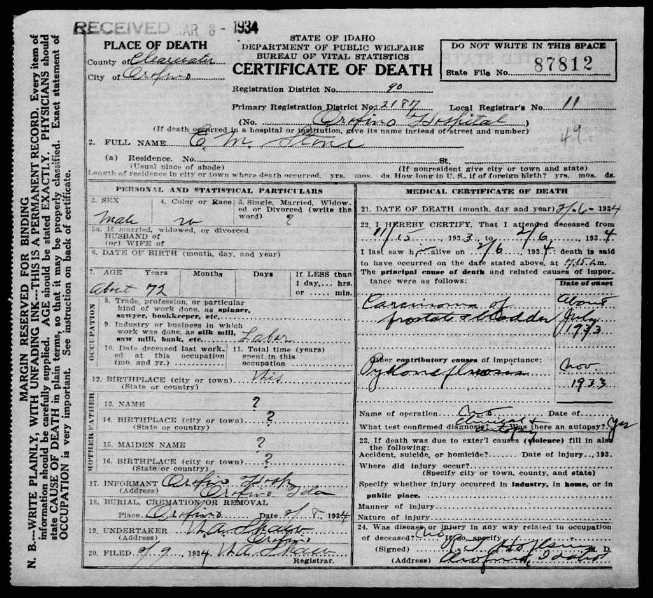 RECEIVED MAR 8 - 1934
N. B.—WRITE PLAINLY, WITH UNFADING INK—THIS IS A PERMANENT RECORD. Every item of
information should be carefully supplied. AGE should be stated EXACTLY. PHYSICIANS should
state CAUSE OF DEATH in plain terms, so that it may be properly classified. Exact statement of
OCCUPATION is very important. See instruction on back of certificate.
MARGIN RESERVED FOR BINDING
PLACE OF DEATH
County of Clearwater
City of Orofino
STATE OF IDAHO
DEPARTMENT OF PUBLIC WELFARE
BUREAU OF VITAL STATISTICS
CERTIFICATE OF DEATH
DO NOT WRITE IN THIS SPACE
State File No. 87812
Registration District No. 90
Primary Registration District No. 2187 Local Registrar's No. 11
(No. Orofino Hospital )
(If death occurred in a hospital or institution, give its name instead of street and number)
2. FULL NAME E. M. Stone
(a) Residence. No. St.
(Usual place of abode) (If nonresident give city or town and state)
Length of residence in city or town where death occurred, yrs. mos. ds. How long in U. S., if of foreign birth? yrs. mos. ds.
PERSONAL AND STATISTICAL PARTICULARS
3. SEX 4. Color or Race 5. Single, Married, Widowed, or Divorced (write the word)
Male w ?
5a. If married, widowed, or divorced
HUSBAND of
(or) WIFE of
6. DATE OF BIRTH (month, day, and year)
7. AGE Years Months Days If LESS than
1 day, hrs.
or min.
abut 72
OCCUPATION
8. Trade, profession, or particular
kind of work done, as spinner,
sawyer, bookkeeper, etc.
9. Industry or business in which
work was done, as silk mill,
saw mill, bank, etc. Labor
10. Date deceased last worked at this occupation
(mo. and yr.)
11. Total time (years)
spent in this
occupation
12. BIRTHPLACE (city or town)
(State or country)
FATHER
13. NAME ?
14. BIRTHPLACE (city or town) ?
(State or country)
MOTHER
15. MAIDEN NAME ?
16. BIRTHPLACE (city or town) ?
(State or country)
17. INFORMANT Orofino Hosp
(Address) Orofino Ida
18. BURIAL, CREMATION OR REMOVAL
Place Orofino Date 2/8 1934
19. UNDERTAKER
(Address) Orofino
20. FILED 2/9 1934
Registrar.
MEDICAL CERTIFICATE OF DEATH
21. DATE OF DEATH (month, day and year) 2/6 1934
22. I HEREBY CERTIFY, That I attended deceased from
11/13 1933 to 2/6, 1934
I last saw h alive on 2/6 1934 death is said
to have occurred on the date stated above, at m.
The principal cause of death and related causes of importance were as follows:
Date of onset
Carcinoma of
prostate & bladder
About
July
1933
Other contributory causes of importance:
Nov.
1933
Name of operation no Date of
What test confirmed diagnosis? Was there an autopsy? yes
23. If death was due to exter'l causes (violence) fill in also
the following:
Accident, suicide, or homicide? Date of injury 193
Where did injury occur?
(Specify city or town, county, and state)
Specify whether injury occurred in industry, in home, or in
public place.
Manner of injury
Nature of injury
24. Was disease or injury in any way related to occupation
of deceased? no If so, specify
(Signed) M. D.
(Address) Orofino, Idaho